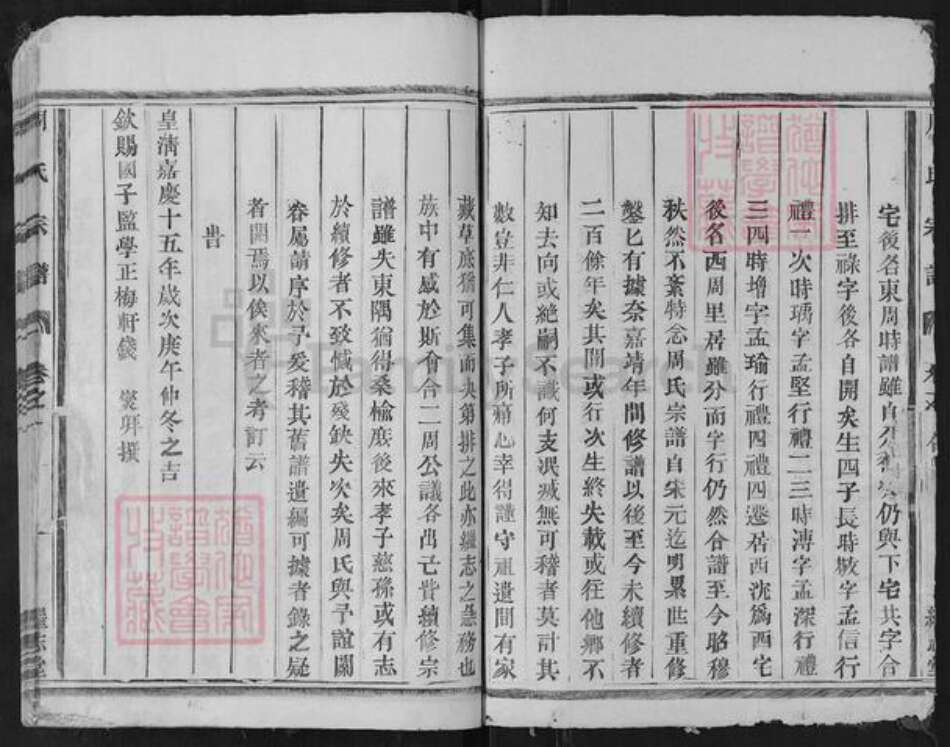 宅後名東周時譜雖自仍與下宅共字合
排至祿字後各自開矣生四子長時敏字孟信行
禮一次時瑀字孟堅行禮二三時溥字孟深行禮
三四時增字孟瑜行禮四禮四遷居西沈爲西宅
後名西周里居雖分而字行仍然合譜至今昭穆
秩然不紊特念周氏宗譜自宋元迄明累世重修
鑿七有據奈嘉靖年間修譜以後至今未續修者
二百餘年矣其間或行次生終失載或往他鄉不
知去向或絶嗣不識何支泯滅無可稽者莫計其
數豈非仁人孝子所痛心幸得謹守祖遺間有家
藏草底猶可集而夬第排之此亦繼志之急務也
族中有感於斯會合二周公議各出己貲續修宗
譜雖失東隅猶得桑榆庶後來孝子慈孫或有志
於續修者不致憾於殘缺失次矣周氏與予誼關
眷屬請序於予爰稽其舊譜遺編可據者錄之疑
者闕焉以俟來者之考訂云
旹
皇清嘉慶十五年歲次庚午仲冬之吉
欽賜國子監學正梅軒錢 撰
周氏宗譜 卷之
繼志堂